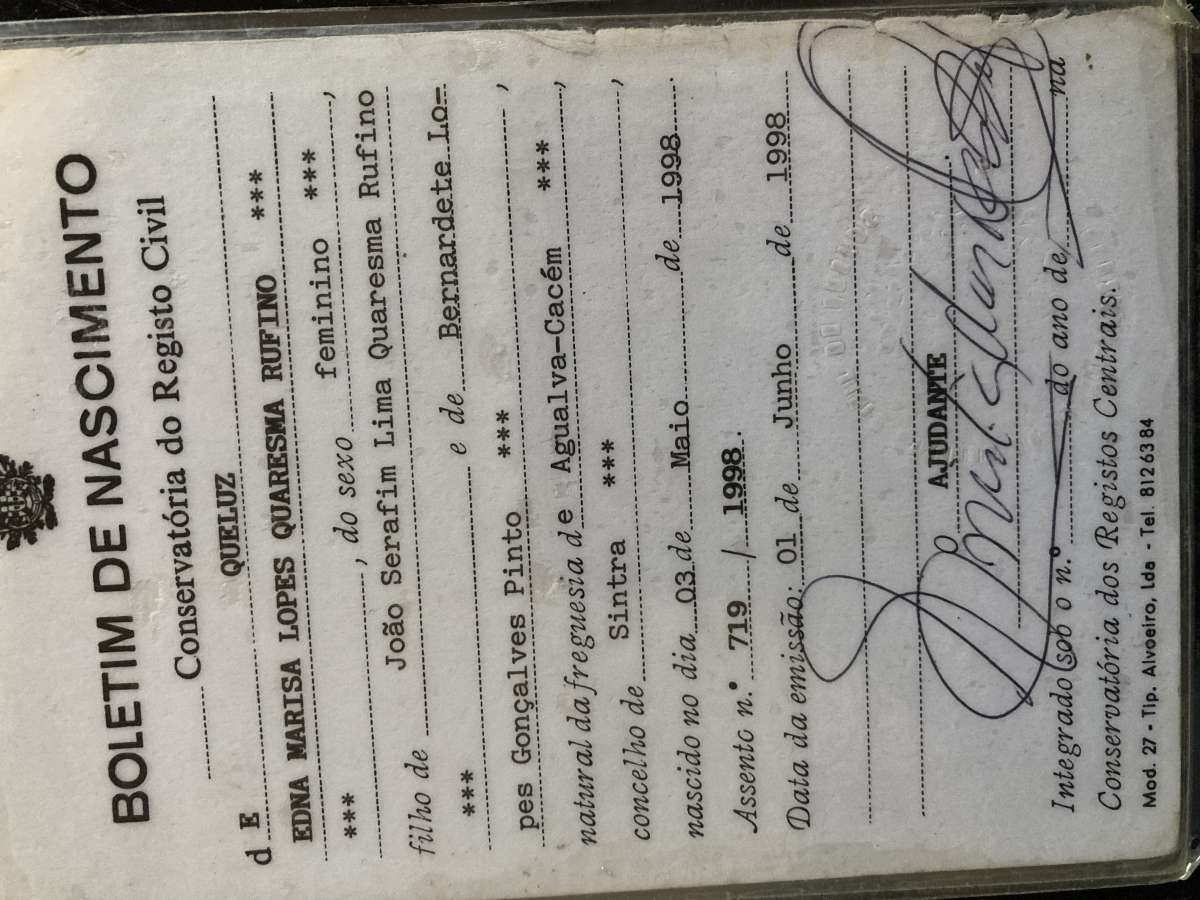 BOLETIM DE NASCIMENTO
Conservatória do Registo Civil
d E QUELUZ
EDNA MARISA LOPES QUARESMA RUFINO ***
*** , do sexo feminino *** ,
filho de João Serafim Lima Quaresma Rufino
*** e de Bernardete Lo=
pes Gonçalves Pinto *** ,
natural da freguesia d e Agualva-Cacém *** ,
concelho de Sintra *** ,
nascido no dia 03 de Maio de 1998 .
Assento n.º 719 / 1998 .
Data da emissão: 01 de Junho de 1998
O AJUDANTE
Integrado sob o n.º do ano de na
Conservatória dos Registos Centrais.
Mod. 27 - Tip. Alvoeiro, Lda - Tel. 8126384